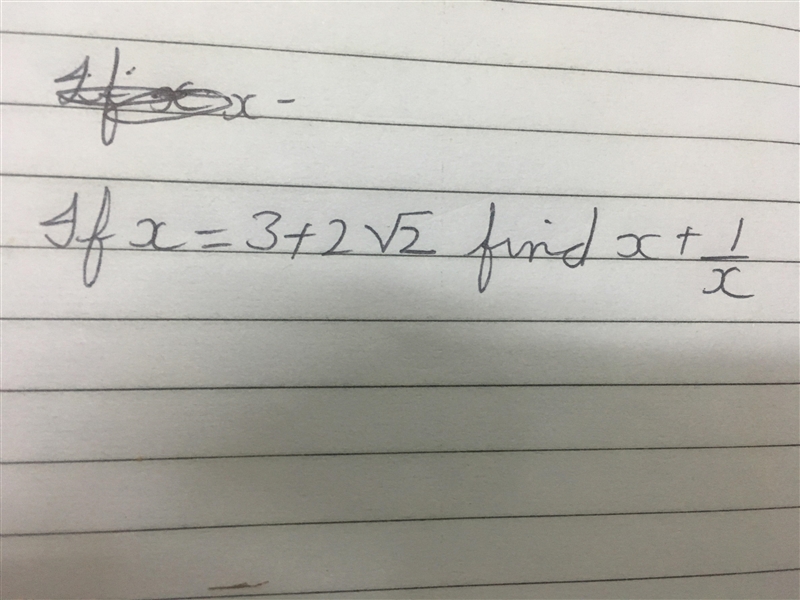 If x x -
If x = 3+2√2 find x + 1/x